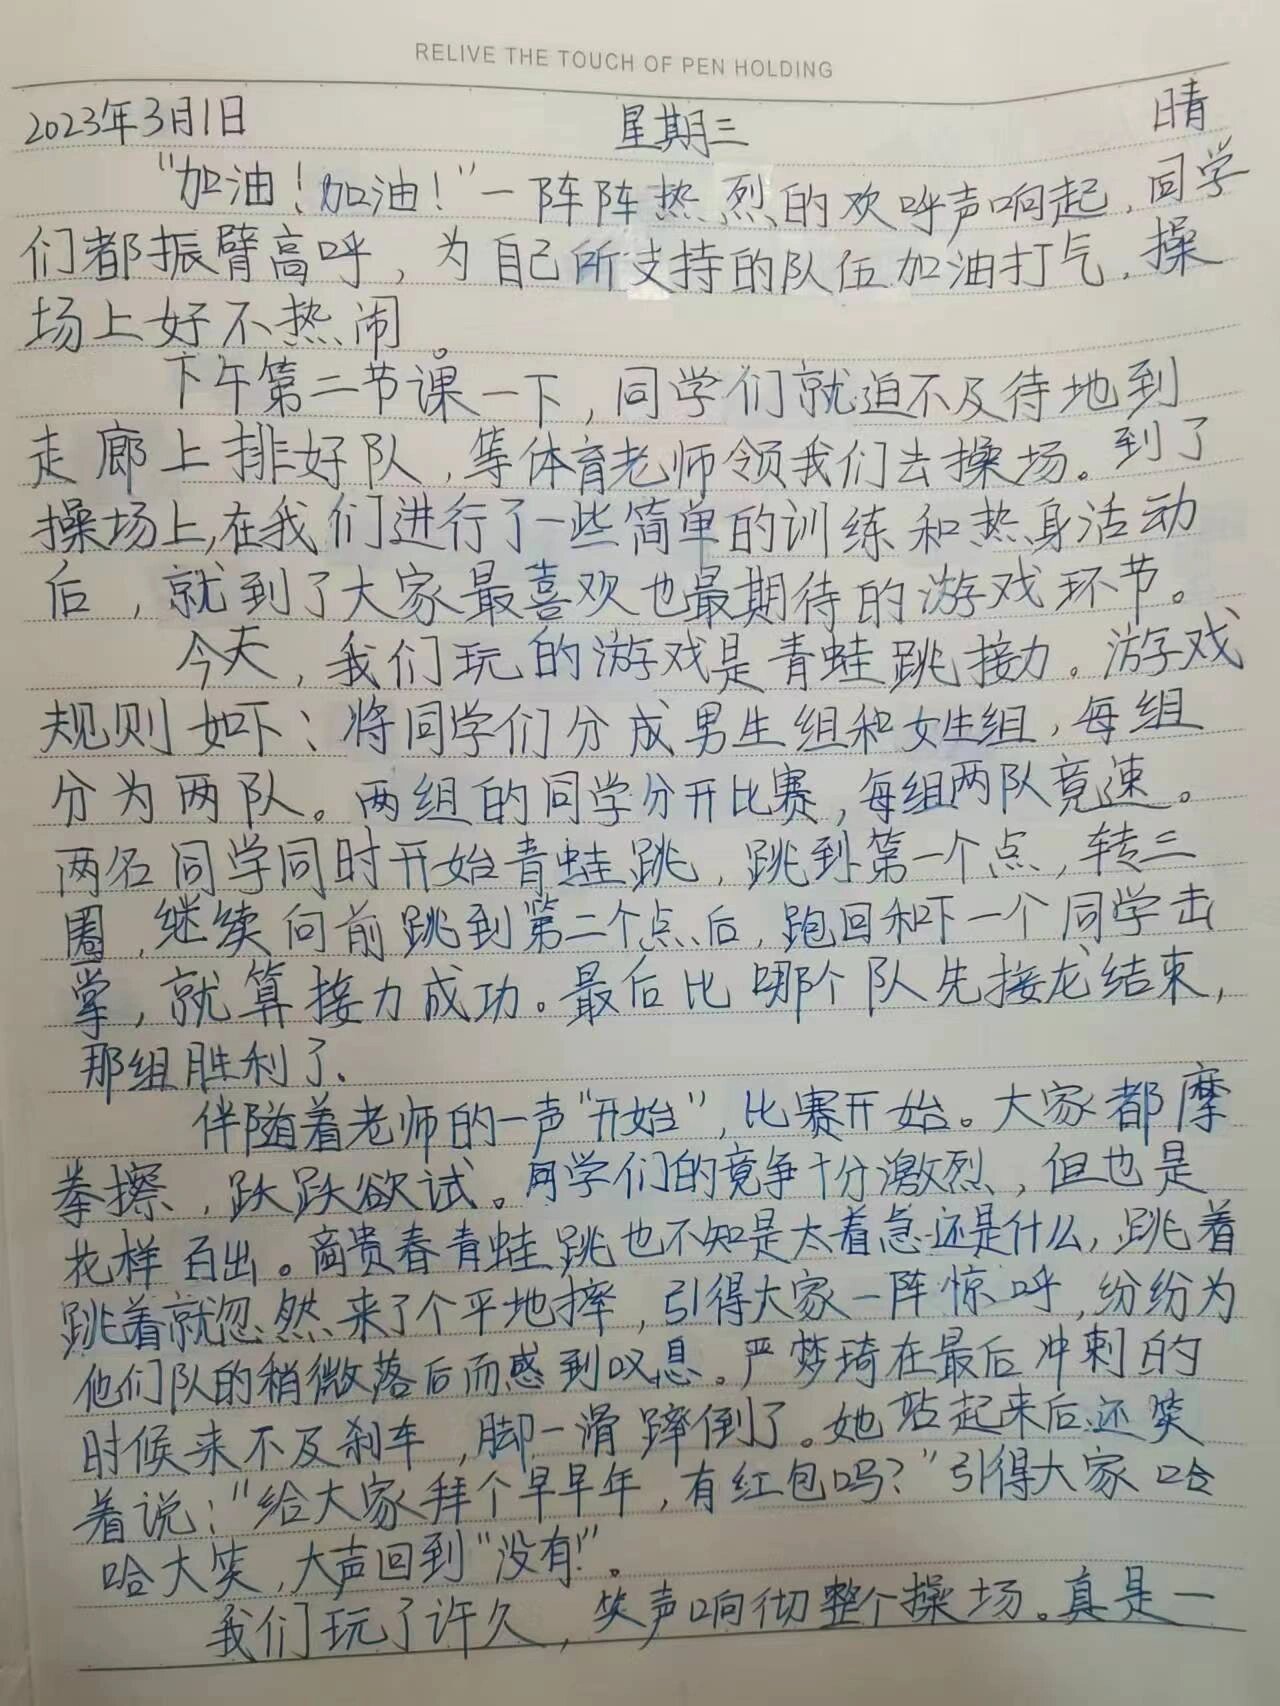 RELIVE THE TOUCH OF PEN HOLDING
2023年3月1日 星期三 晴
"加油！加油！"一阵阵热烈的欢呼声响起，同学
们都振臂高呼，为自己所支持的队伍加油打气，操
场上好不热闹。
下午第二节课一下，同学们就迫不及待地到
走廊上排好队，等体育老师领我们去操场。到了
操场上，在我们进行了一些简单的训练和热身活动
后，就到了大家最喜欢也最期待的游戏环节。
今天，我们玩的游戏是青蛙跳接力。游戏
规则如下：将同学们分成男生组和女生组，每组
分为两队。两组的同学分开比赛，每组两队竞速。
两名同学同时开始青蛙跳，跳到第一个点，转三
圈，继续向前跳到第二个点后，跑回和下一个同学击
掌，就算接力成功。最后比哪个队先接龙结束，
那组胜利了、
伴随着老师的一声"开始"，比赛开始。大家都摩
拳擦，跃跃欲试。同学们的竞争十分激烈，但也是
花样百出。商贵春青蛙跳也不知是太着急还是什么，跳着
跳着就忽然来了个平地摔，引得大家一阵惊呼，纷纷为
他们队的稍微落后而感到叹息。严梦琦在最后冲刺的
时候来不及刹车，脚一滑蹿倒了。她站起来后还笑
着说："给大家拜个早早年，有红包吗？"引得大家哈
哈大笑，大声回到"没有！"。
我们玩了许久，笑声响彻整个操场。真是一